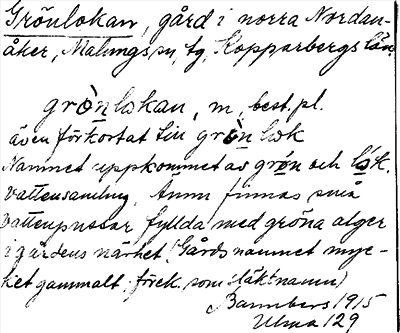 Grönlokan, gård i norra Nordan-
åker, Malungs sn, fg, Kopparbergs län.
grònlokan, m, best. pl.
även förkortat till grònlok
Namnet uppkommet av grön och lok.
vattensamling. Ännu finnas små
vattenpussar fyllda med gröna alger
i gårdens närhet (Gårdsnamnet myc-
ket gammalt, förek. som släktnamn)
1915
Ulma 129